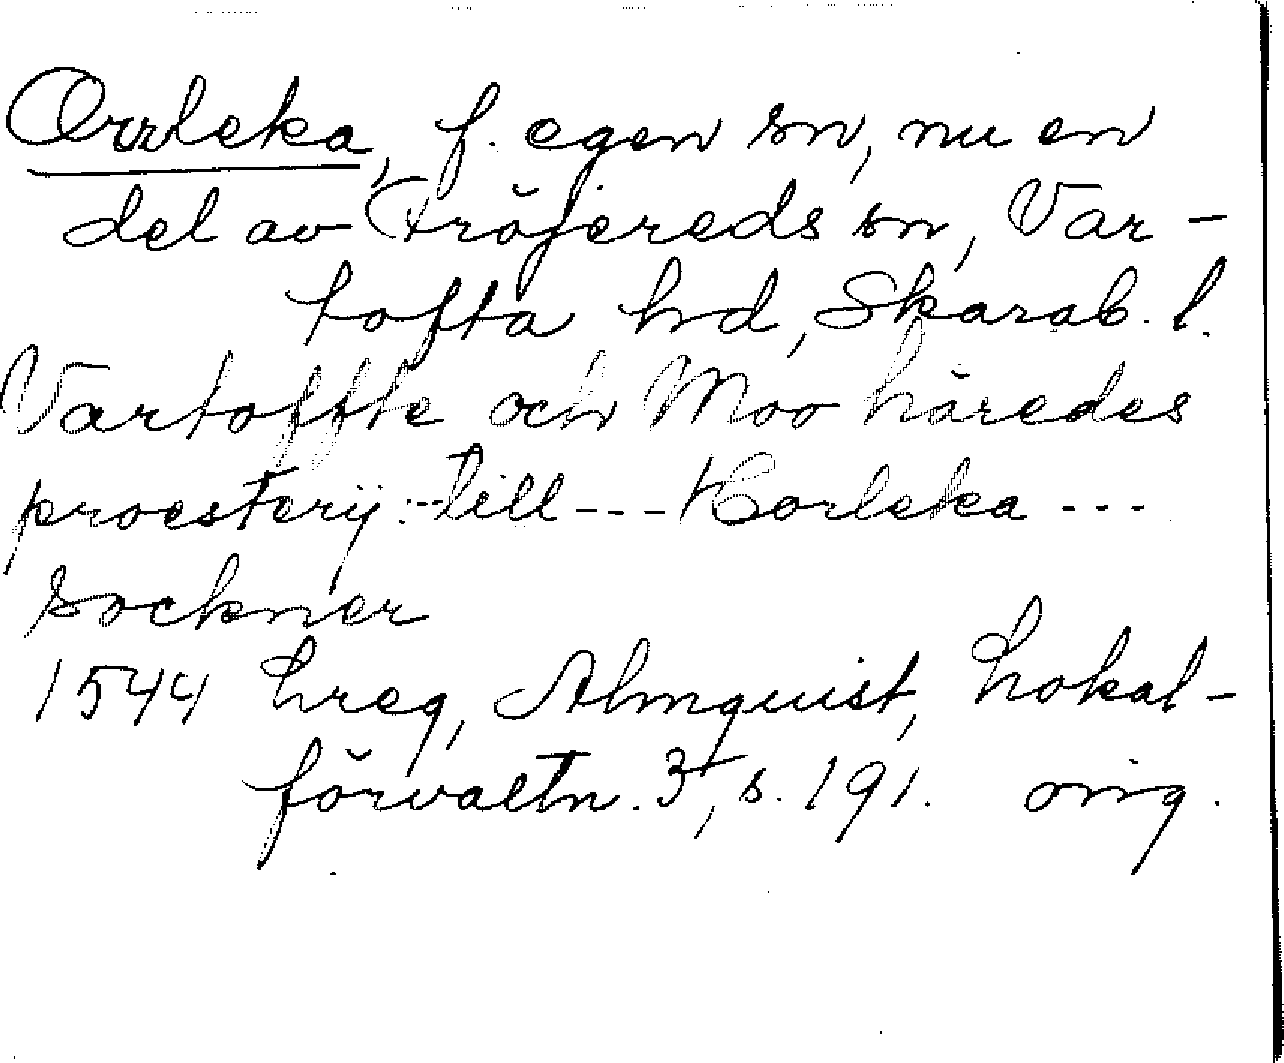 Orrleka, f. egen sn, nu en
del av Fröjereds sn, Var-
tofta hd, Skarab. l.
Vartoffte och Moo häredes
proesterij:-till---Horleka---
sockner
1544 hreg, Almquist, Lokal-
förvaltn. 3, s. 191. orig.